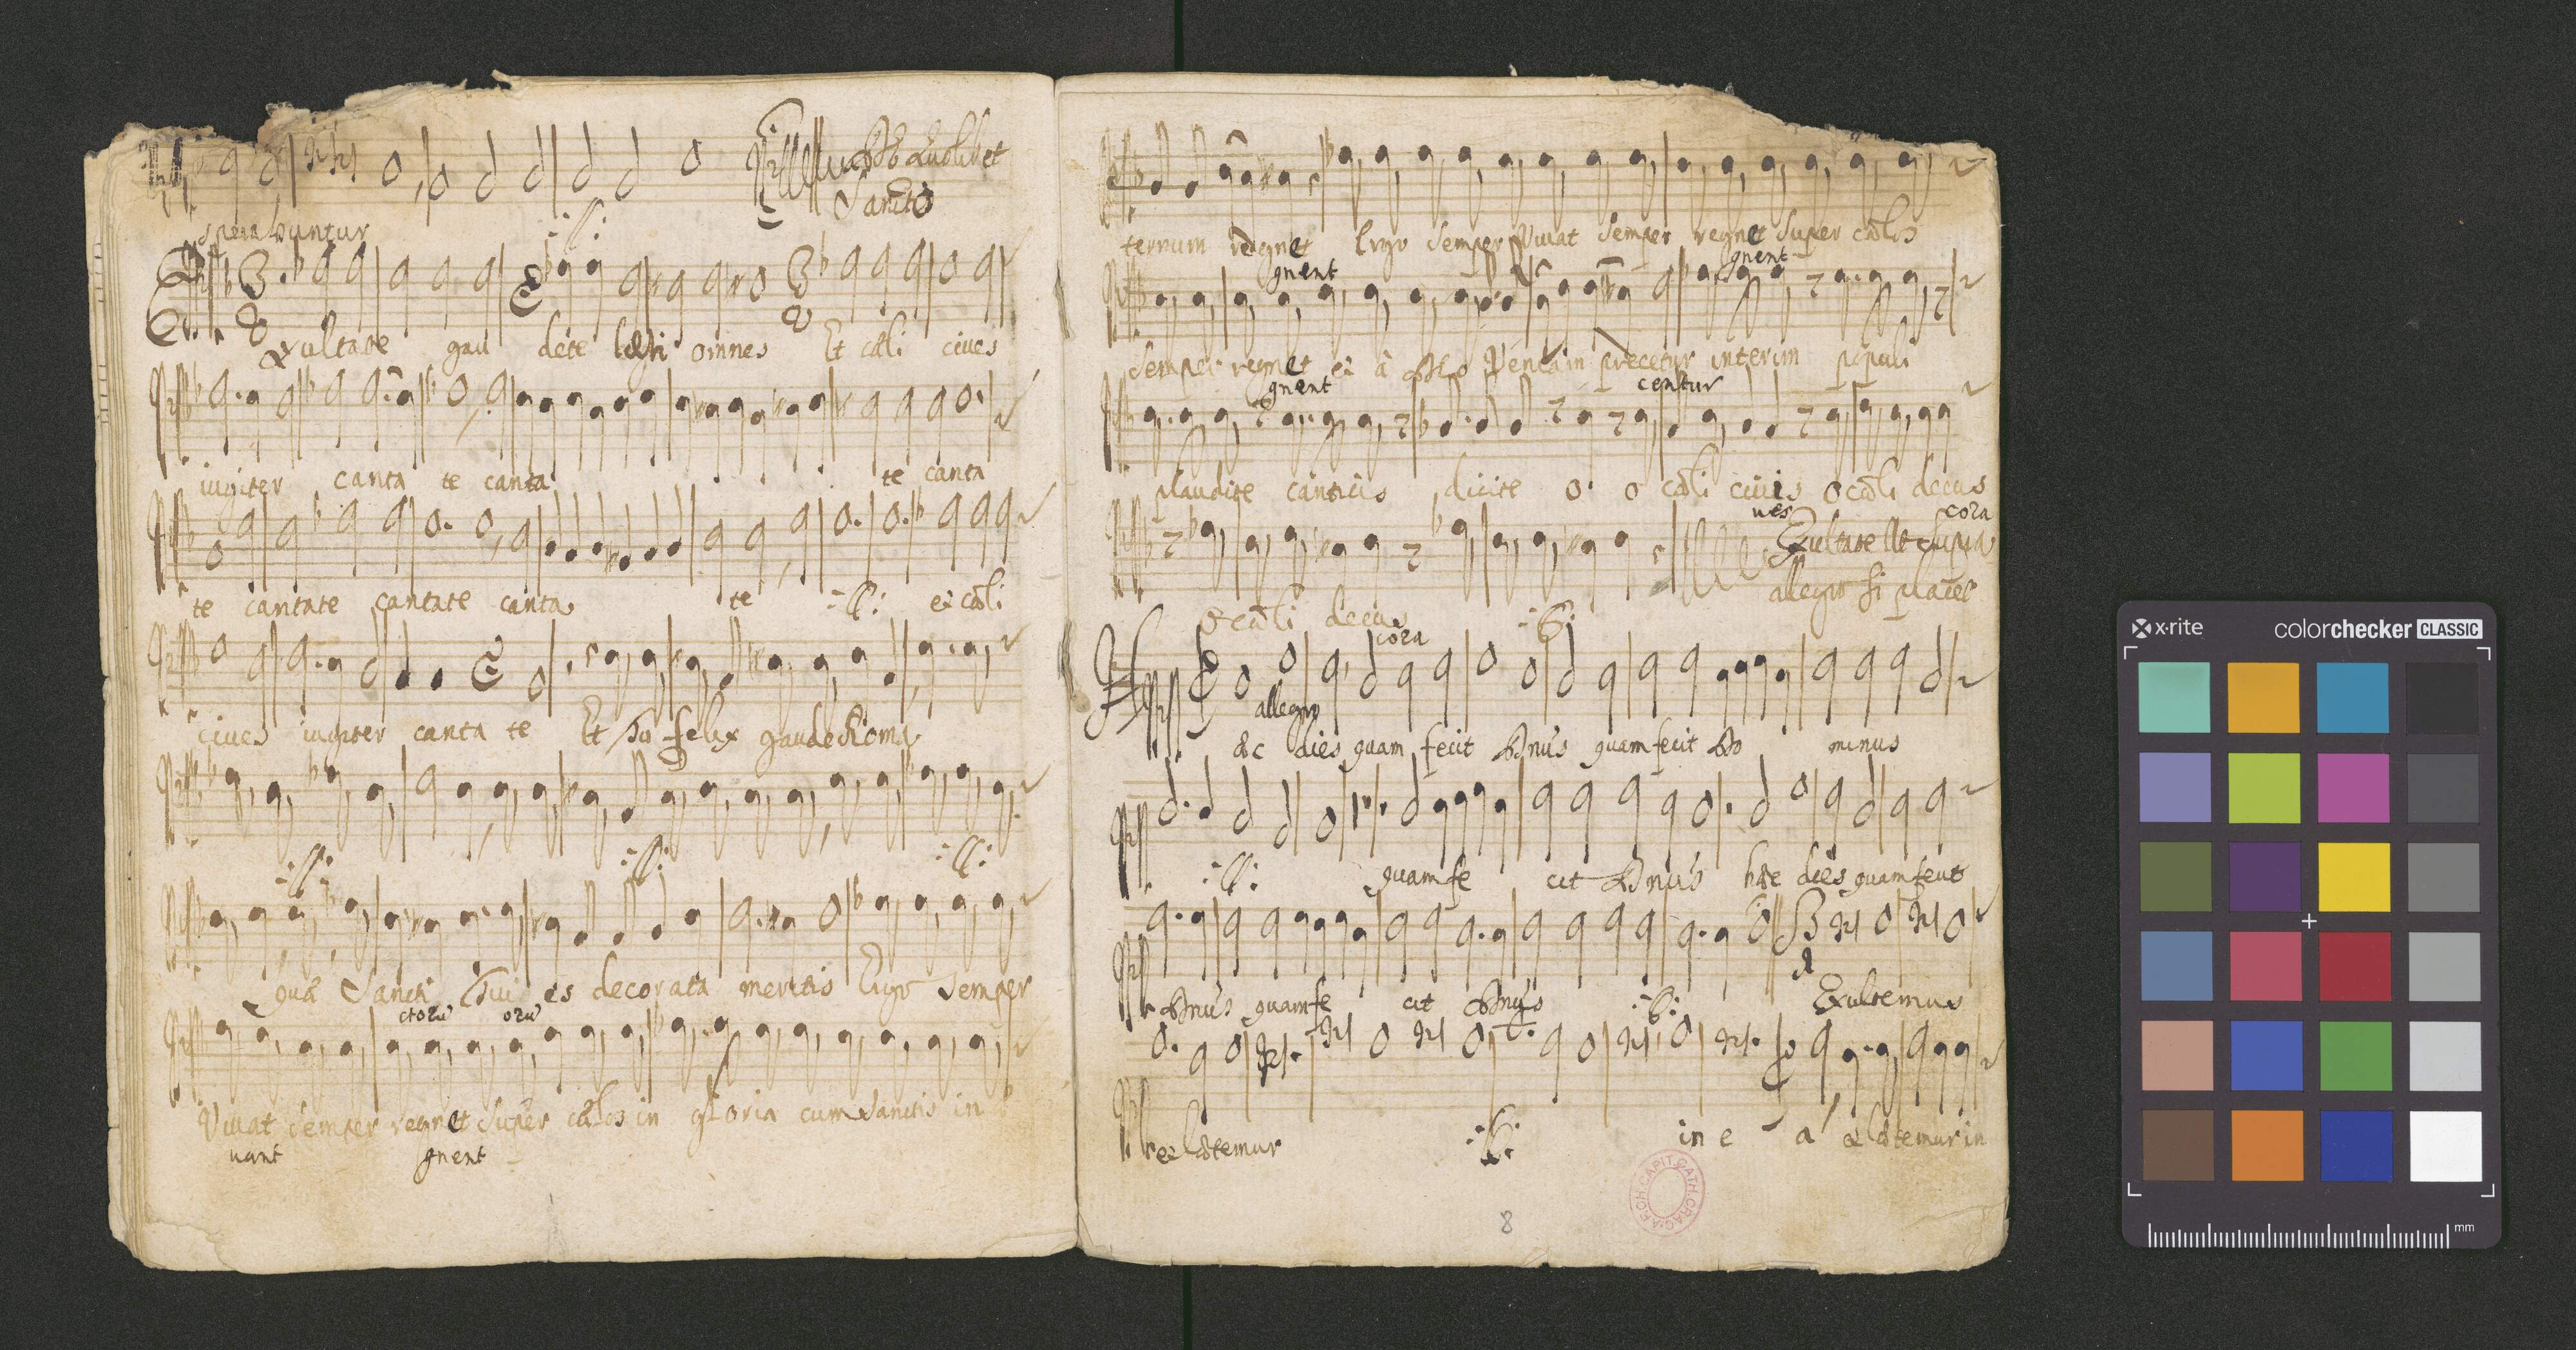 De Quolibet
Sancto
sperabuntur
Exultate gau dete læti omnes Et cæli cives
iugiter canta te canta te canta
te cantate cantate canta te :||: et cæli
cives iugiter canta te Et tu felix gaude Roma
:||: :||: :||:
quæ Sancti tui es decorata meritis Ergo semper
ctorū orū
Vivat semper regnet super cælos in gloria cum sanctis in
vant gnent
ternum regnet Ergo semper Vivat semper regnet super cælos
gnent gnent
semper regnet et à Deo Veniam precetur interim populi
gnent centur
plaudite canticis dicite o o cæli civis o cæli decus
ves cora
Exultate Ut supra
allegro si placet
o cæli decus
cora
allegro
Hæc dies quam fecit Dn̄us quam fecit Do minus
:||: quam fe cit Dn̄us hæc dies quam fecit
Dn̄us quam fe cit Dn̄us :||: Exultemus
et lætemur :||: in e a et lætemur in
8
ARCH. CAPIT. CATH. CRAC.
x·rite colorchecker CLASSIC
mm